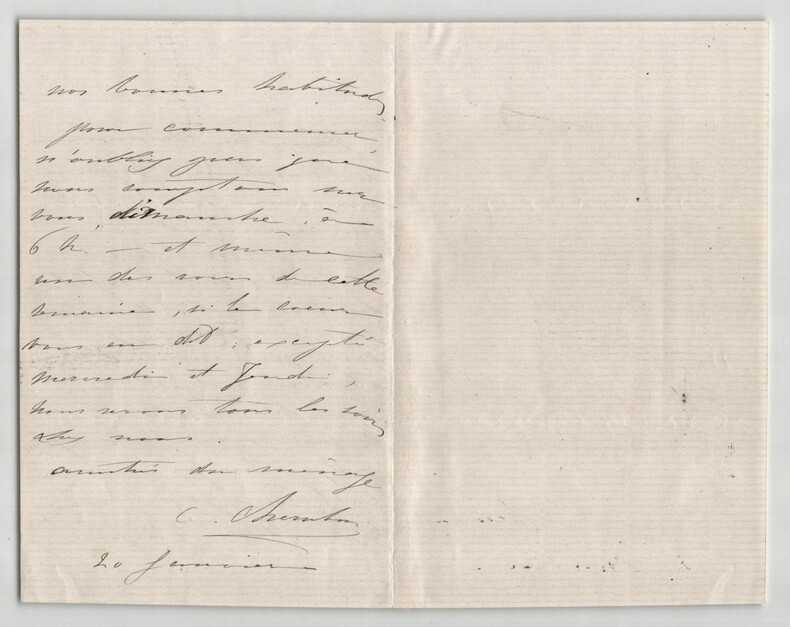 nos bonnes habitudes,
pour commencer,
n'oubliez pas que
nous comptons sur
vous dimanche, à
6 h. — et même
un des soirs de cette
semaine, si le coeur
vous en dit ; excepté
mercredi et Jeudi,
nous serons tous les soirs
chez nous.
amitiés du ménage
C.
20 Janvier